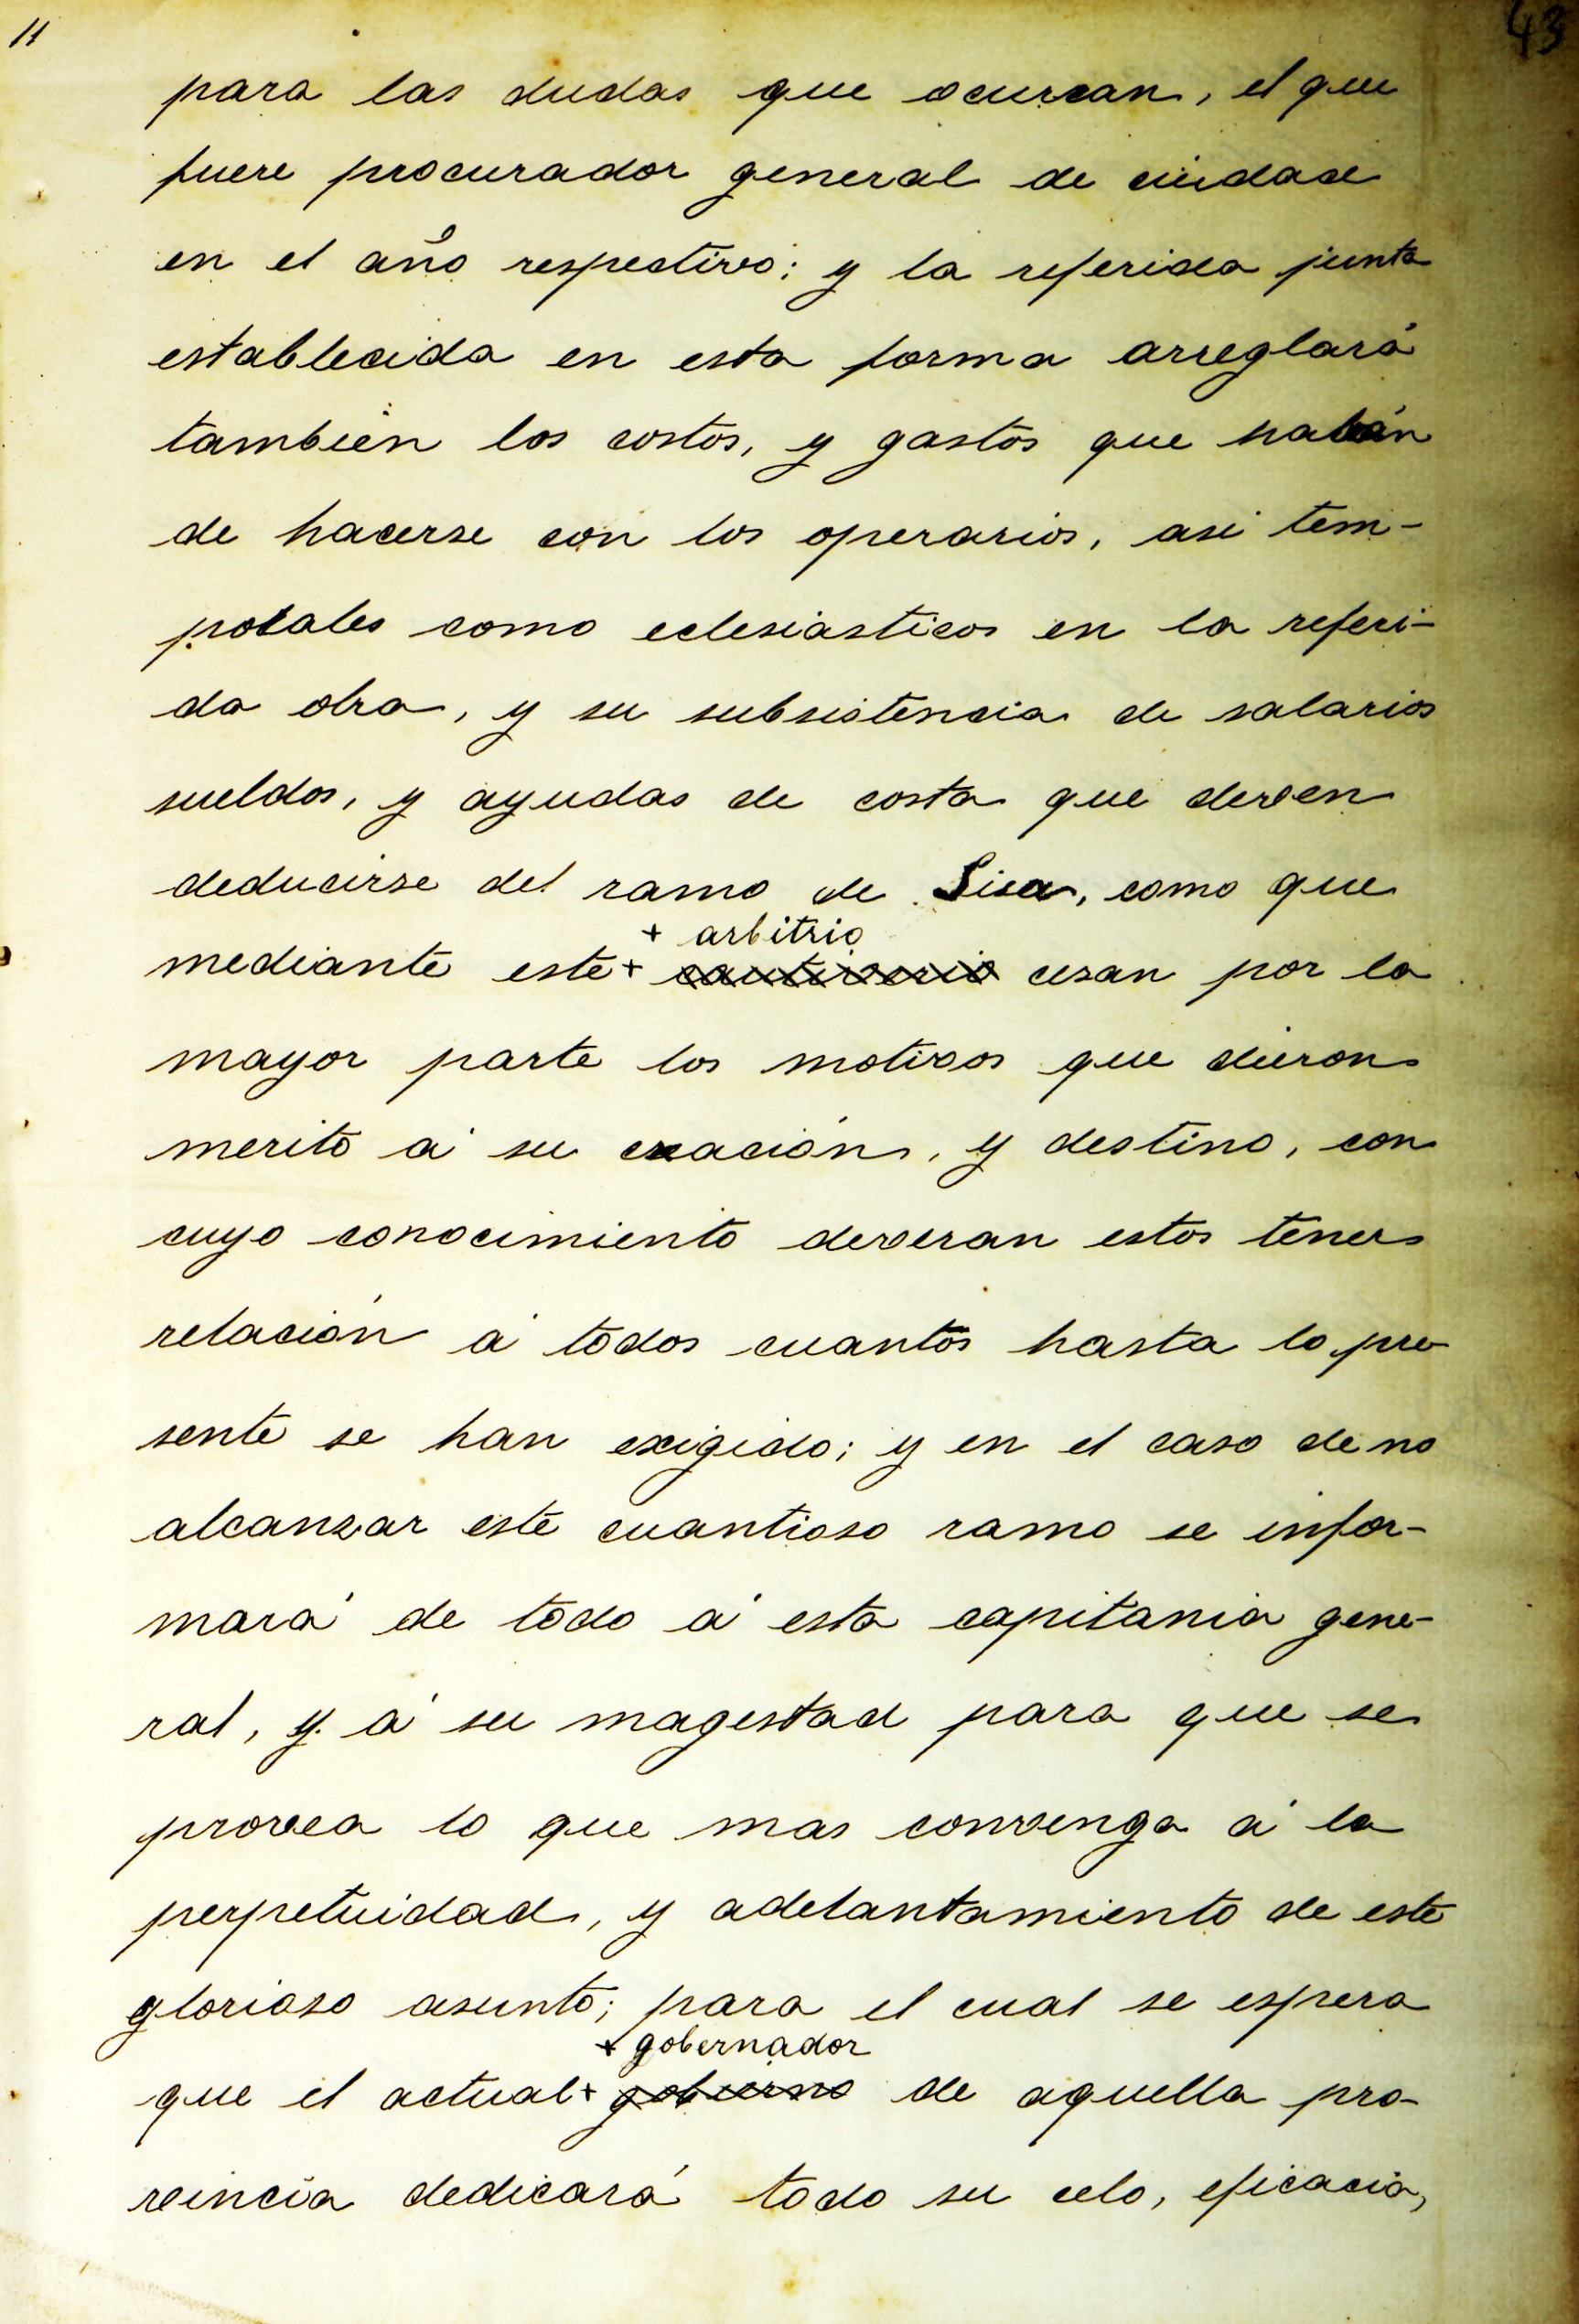 11
43
para las dudas que ocurran, el que
fuere procurador general de ciudad
en el año respectivo; y la referida junta
establecida en esta forma arreglará
también los costos, y gastos que habán
de hacerse con los operarios, asi tem-
porales como eclesiasticos en la referi-
da obra, y su subsistencia de salarios
sueldos, y ayudas de costa que deven
deducirse del ramo de Sisa, como que
+ arbitrio
mediante este + cautiverio cesan por la
mayor parte los motivos que dieron
merito á su creación, y destino, con
cuyo conocimiento deveran estos tener
relación á todos cuantos hasta lo pre
sente se han exigido; y en el caso de no
alcanzar este cuantioso ramo se infor-
mará de todo á esta capitania gene-
ral, y á su magestad para que se
provea lo que mas convenga á la
perpetuidad, y adelantamiento de este
glorioso asunto; para el cual se espera
+ gobernador
que el actual + gobierno de aquella pro-
vincia dedicará todo su celo, eficacia,